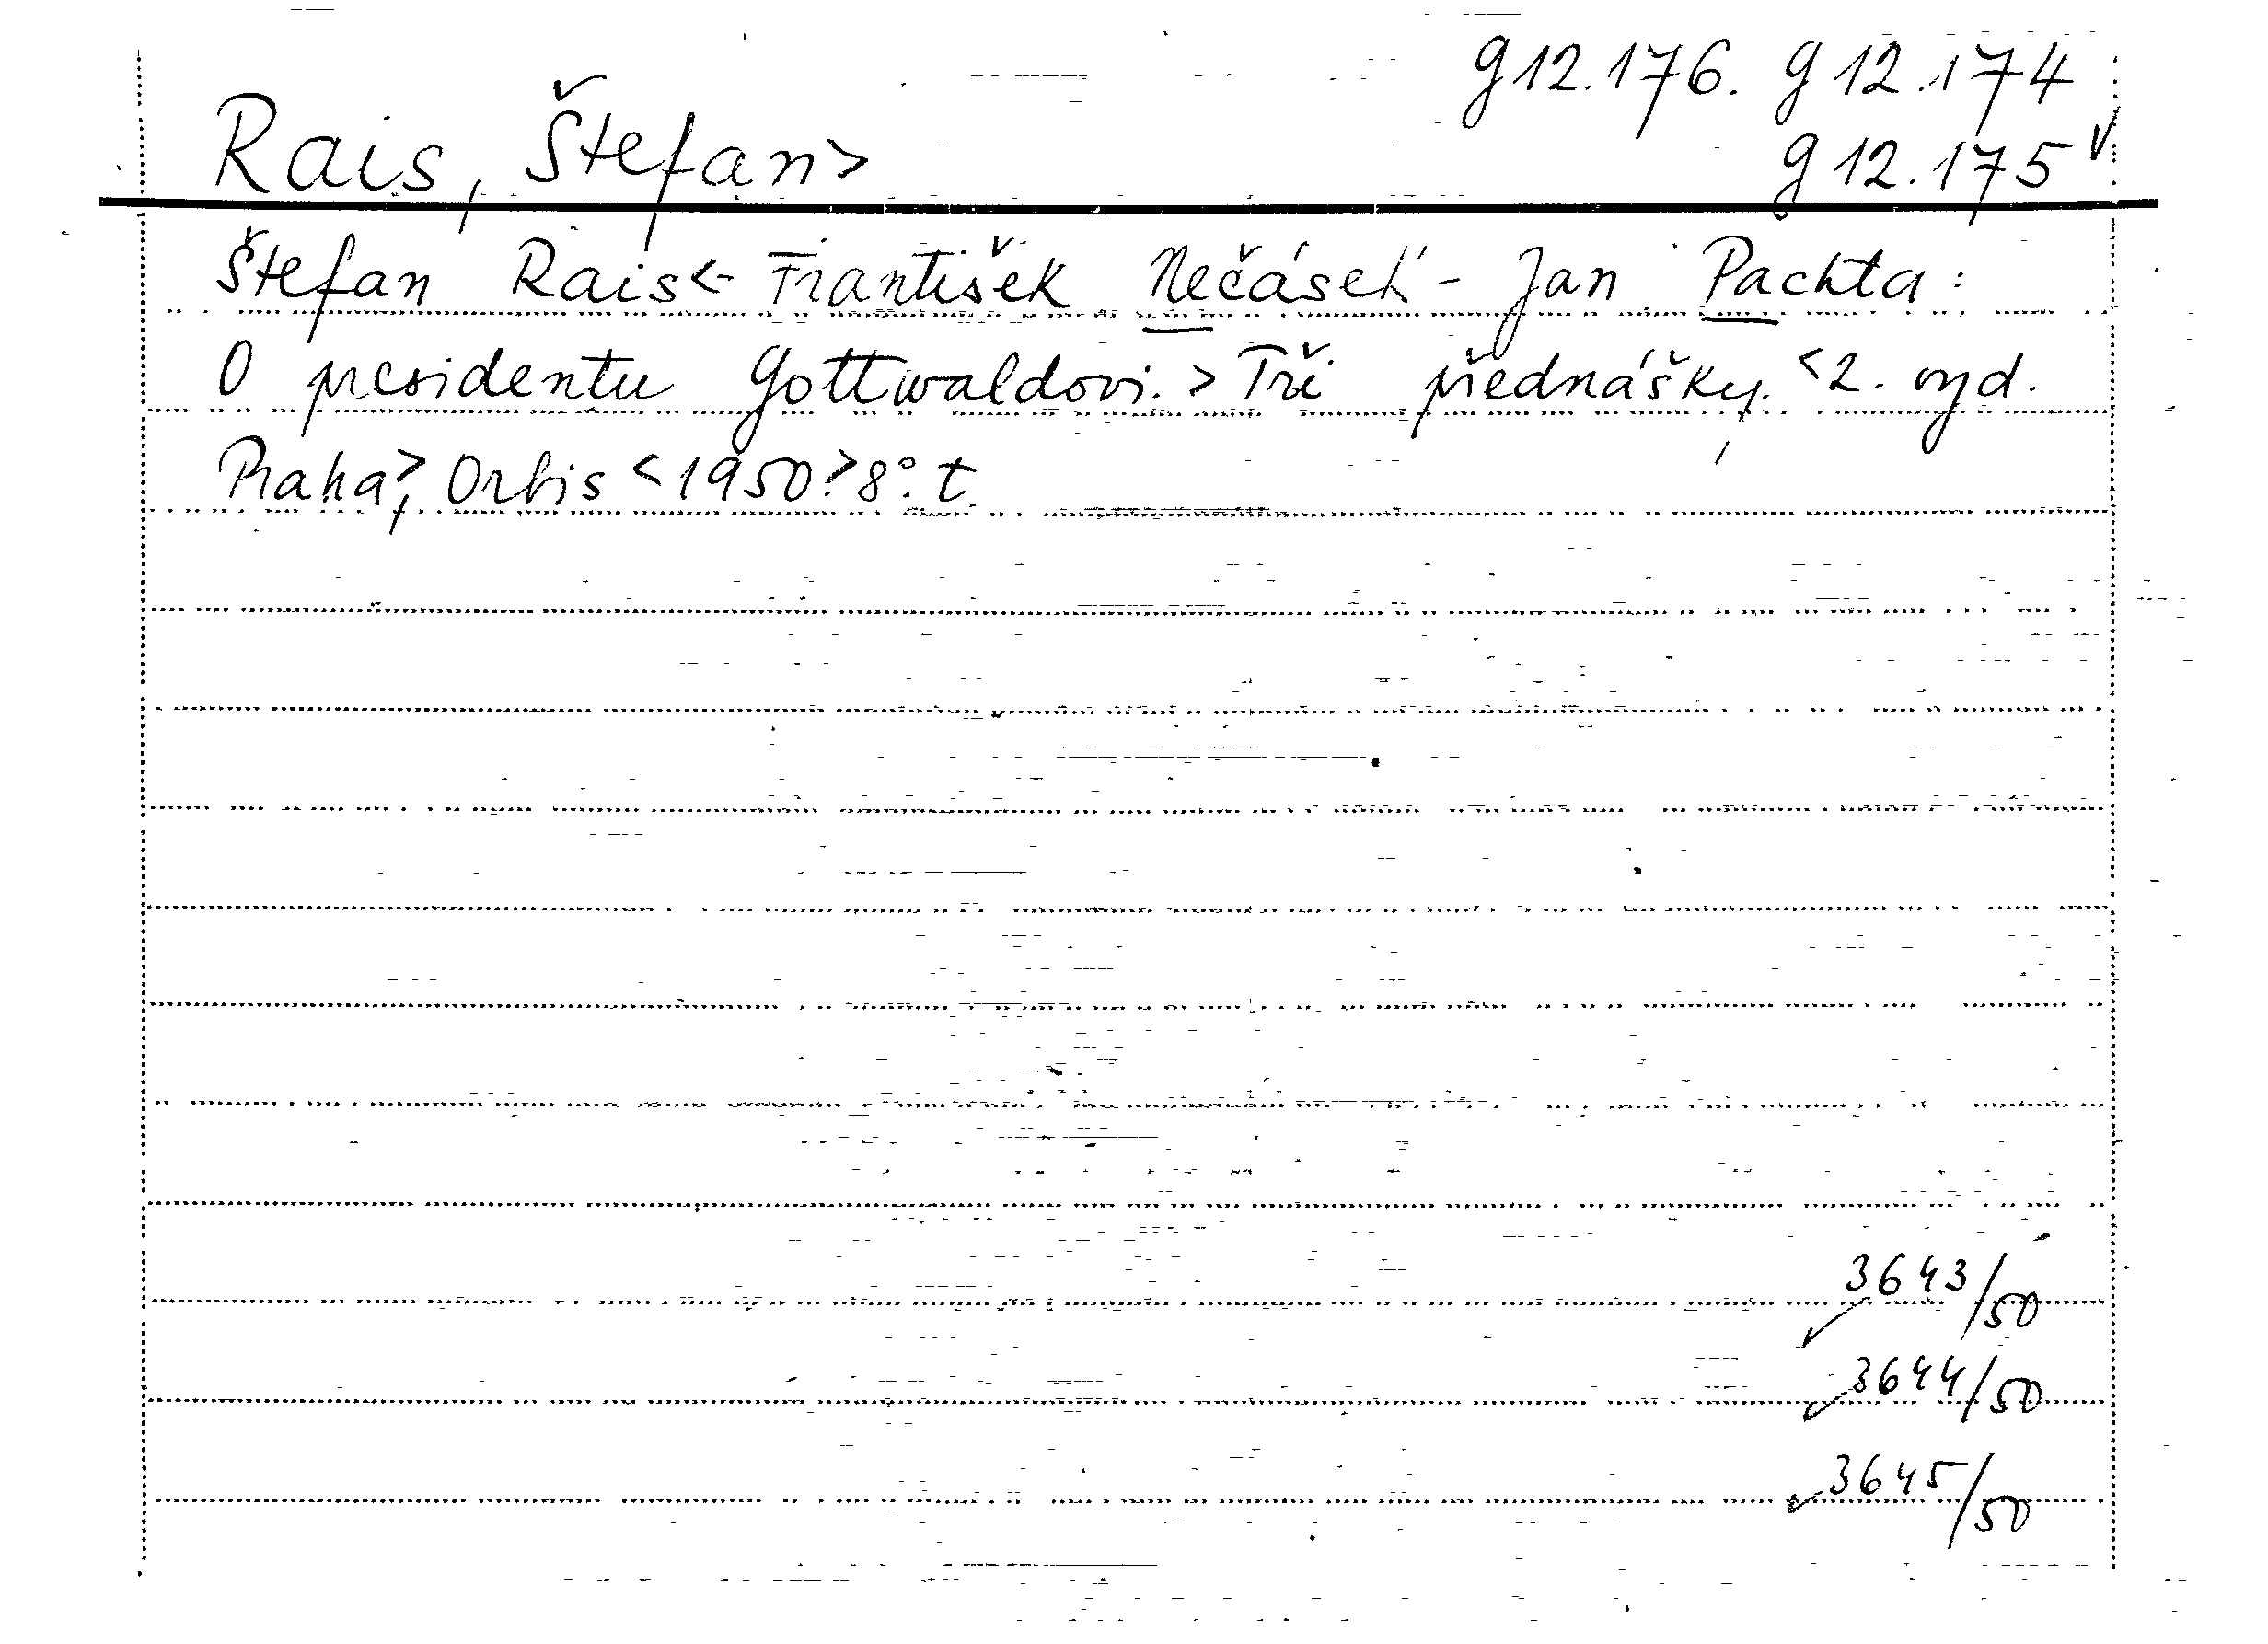 g 12.176. g 12.174
Rais, Štefan> g 12.175
Štefan Rais<- František Nečásek - Jan Pachta:
O presidentu Gottwaldovi.> Tři přednášky. <2. vyd.
Praha>, Orbis <1950>. 8°. t.
3643/50
3644/50
3645/50